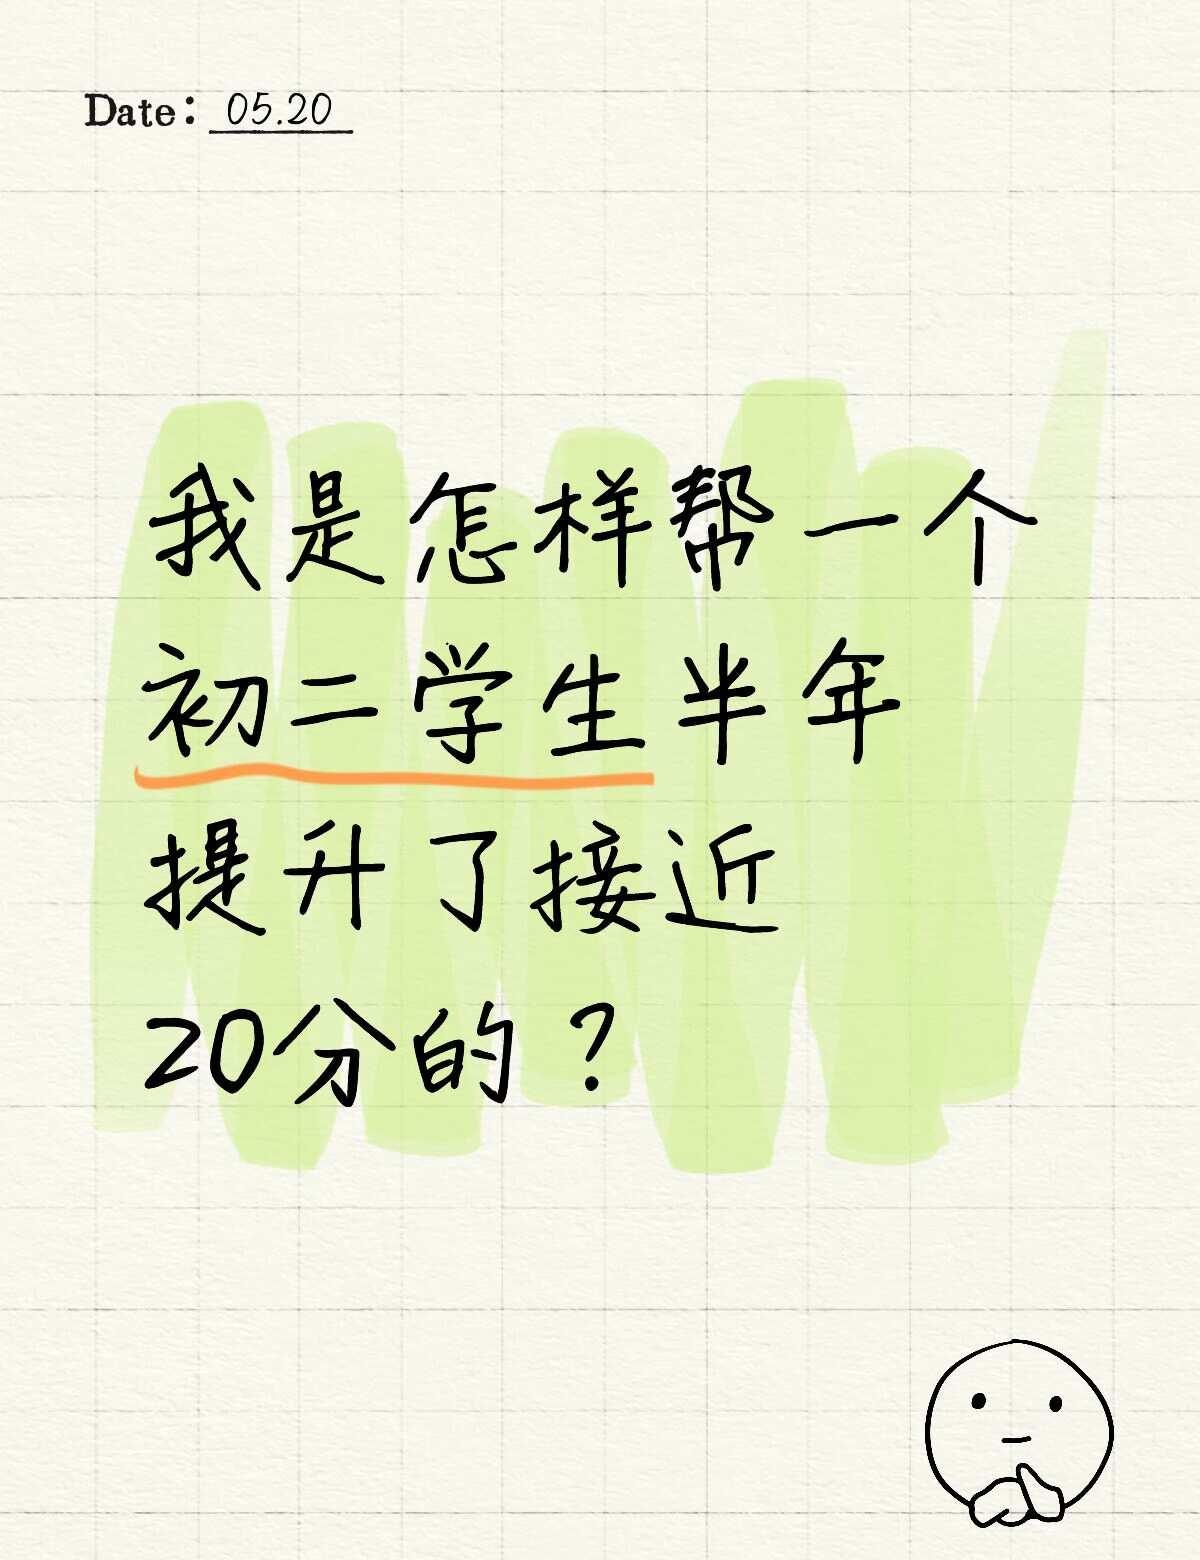 Date: 05.20
我是怎样帮一个
初二学生半年
提升了接近
20分的？